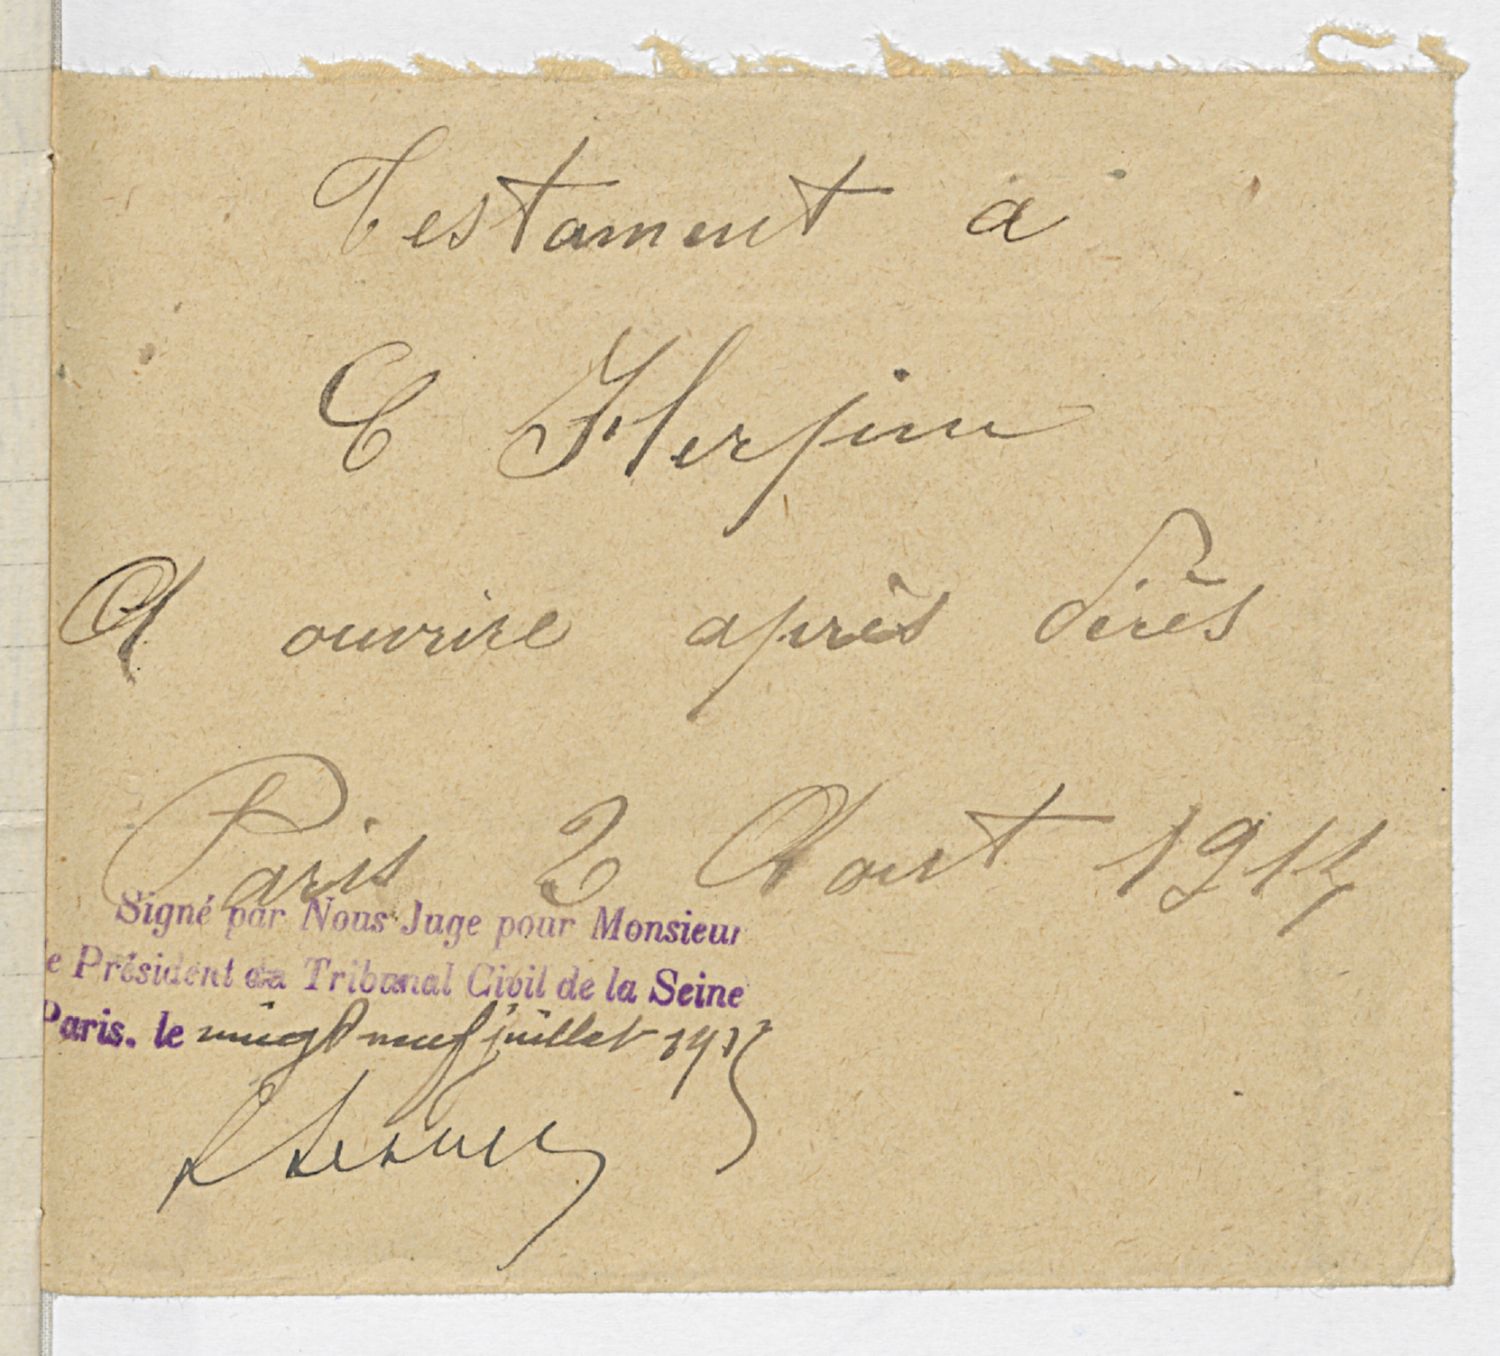 Testament à
C Herpin
A ouvrire après désès
Paris 2 Aout 1914
Signé par Nous Juge pour Monsieur
le Président du Tribunal Civil de la Seine
Paris, le vingt neuf juillet